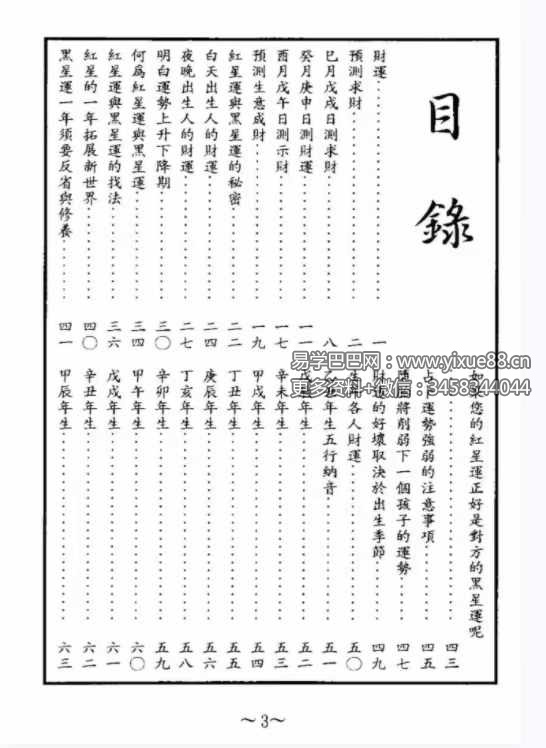 目錄
財運……一
預測求財……二
巳月戊戌日測求財……
癸月庚申日測財運……一一
酉月戊午日測示財……一七
預測生意成財……一九
紅星運與黑星運的秘密……二二
白天出生人的財運……二四
夜晚出生人的財運……二七
明白運勢上升下降期……三〇
何為紅星運與黑星運……三四
紅星運與黑星運的找法……三六
紅星的一年拓展新世界……四〇
黑星運一年須要反省與修養……四一
如果您的紅星運正好是對方的黑星運呢
……四三
運勢強弱的注意事項……四五
將削弱下一個孩子的運勢……四七
財運的好壞取決於出生季節……四九
生年各人財運……五〇
年生五行納音……五一
年生……五二
辛未年生……五三
甲戌年生……五四
丁丑年生……五五
庚辰年生……五六
丁亥年生……五八
辛卯年生……五九
甲午年生……六〇
戊戌年生……六一
辛丑年生……六二
甲辰年生……六三
易学巴巴网：www.yixue88.cn
更多资料+微信：3458344044
～3～